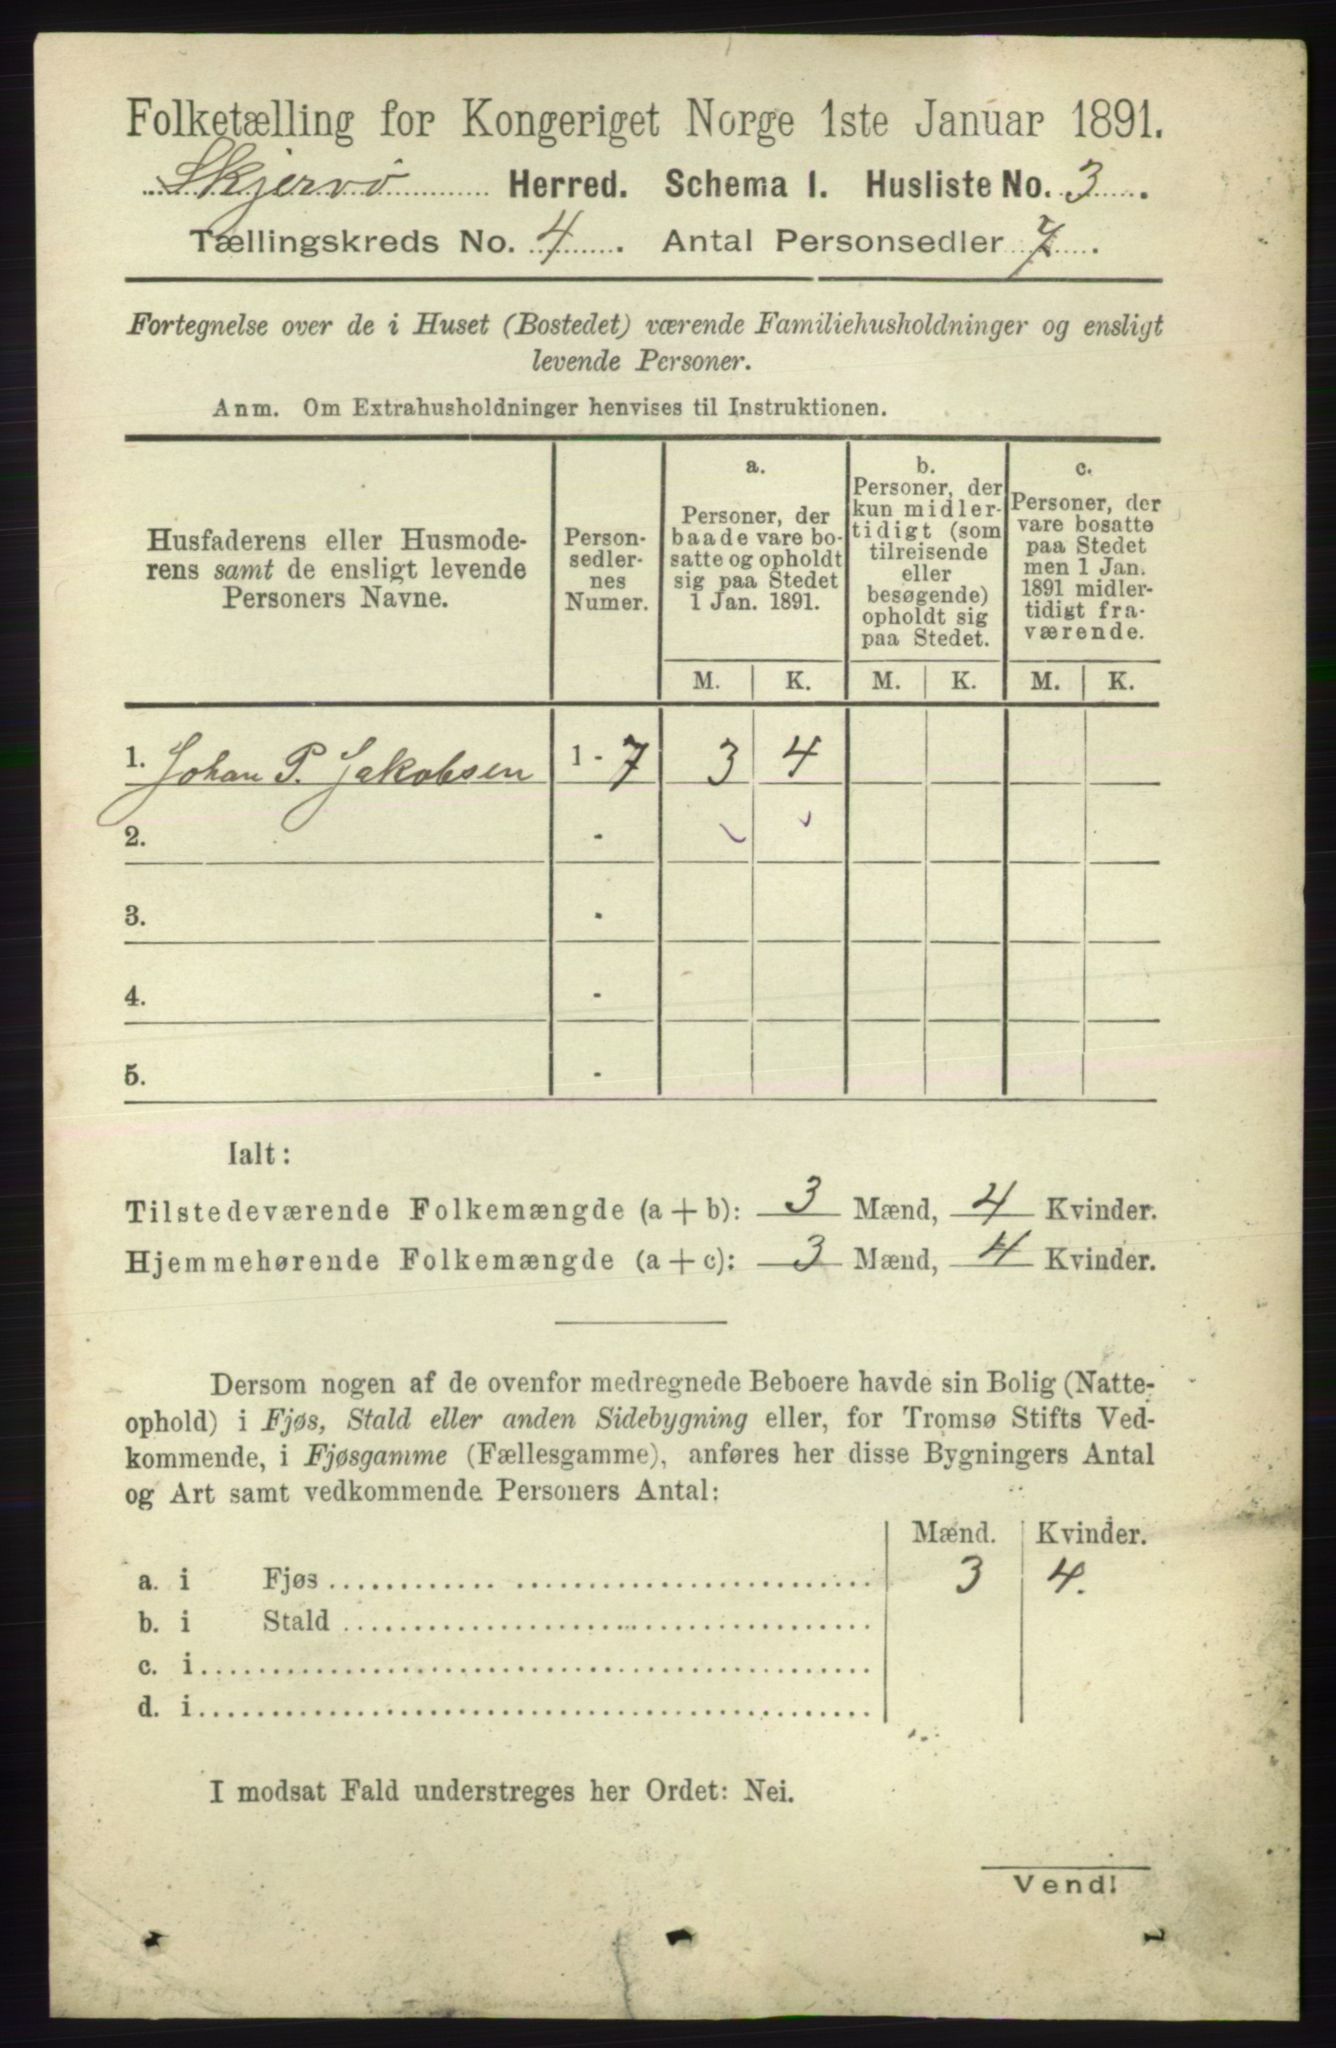 Folketælling for Kongeriget Norge 1ste Januar 1891.
Skjervö Herred. Schema 1. Husliste No. 3.
Tællingskreds No. 4. Antal Personsedler 7.
Fortegnelse over de i Huset (Bostedet) værende Familiehusholdninger og ensligt
levende Personer.
Anm. Om Extrahusholdninger henvises til Instruktionen.
Husfaderens eller Husmode-
rens samt de ensligt levende
Personers Navne.
Person-
sedler-
nes
Numer.
a.
Personer, der
baade vare bo-
satte og opholdt
sig paa Stedet
1 Jan. 1891.
b.
Personer, der
kun midler-
tidigt (som
tilreisende
eller
besøgende)
opholdt sig
paa Stedet.
c.
Personer, der
vare bosatte
paa Stedet
men 1 Jan.
1891 midler-
tidigt fra-
værende.
M. K. M. K. M. K.
1. Johan P. Jakobsen 1 - 7 3 4
2. -
3. -
4. -
5. -
Ialt:
Tilstedeværende Folkemængde (a + b): 3 Mænd, 4 Kvinder.
Hjemmehørende Folkemængde (a + c): 3 Mænd, 4 Kvinder.
Dersom nogen af de ovenfor medregnede Beboere havde sin Bolig (Natte-
ophold) i Fjøs, Stald eller anden Sidebygning eller, for Tromsø Stifts Ved-
kommende, i Fjøsgamme (Fællesgamme), anføres her disse Bygningers Antal
og Art samt vedkommende Personers Antal:
Mænd. Kvinder.
a. i Fjøs 3 4.
b. i Stald
c. i
d. i
I modsat Fald understreges her Ordet: Nei.
Vend!